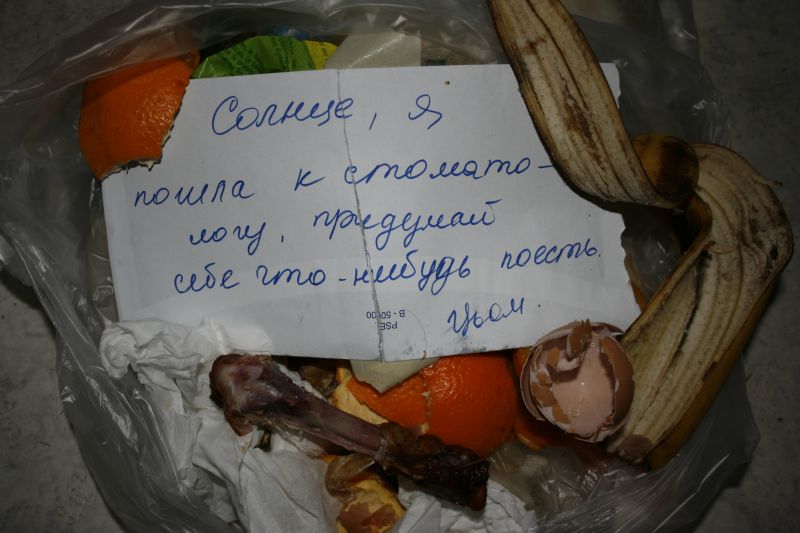 Солнце, я
пошла к стомато-
логу, придумай
себе что-нибудь поесть.
Цьом.
PSE
B - 50